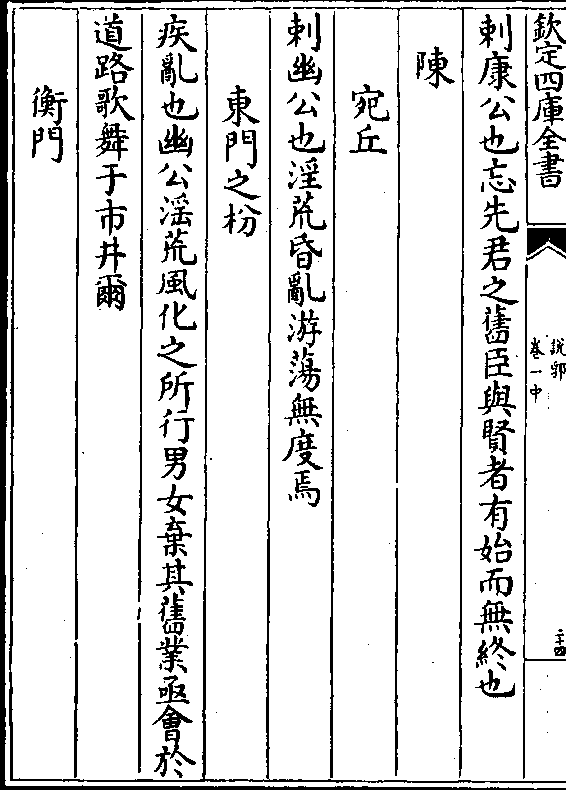 欽定四庫全書
說郛
卷一中
二十四
刺康公也忘先君之舊臣與賢者有始而無終也
陳
宛丘
刺幽公也淫荒昏亂游蕩無度焉
東門之枌
疾亂也幽公淫荒風化之所行男女棄其舊業亟會於
道路歌舞于市井爾
衡門